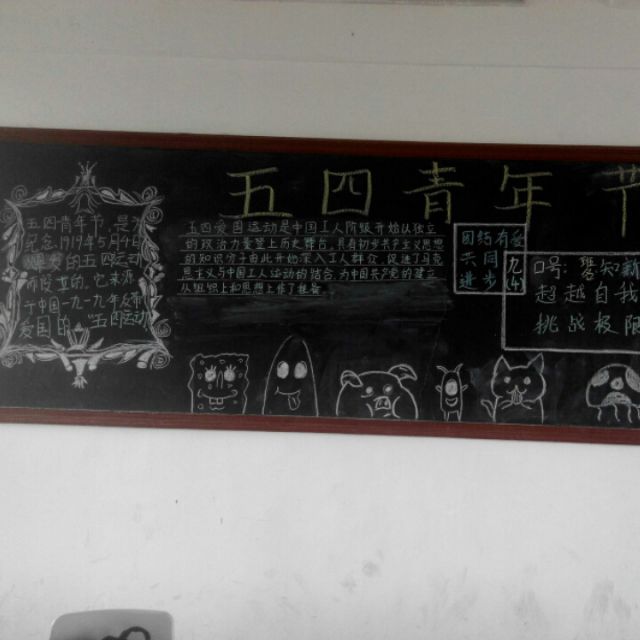 五四青年节
五四青年节是
纪念1919年5月4日
的五四运动
设立的,它来源
中国一九一九年反帝
爱国的"五四运动
五四爱国运动是中国工人阶级开始以独立
的政治力量登上历史舞台,具有初步共产主义思想
的知识分子自此开始深入工人群众,促进了马克
思主义与中国工人运动的结合,为中国共产党的建立
从
团结有爱
共同
进步
口号:
超越自我
挑战极限